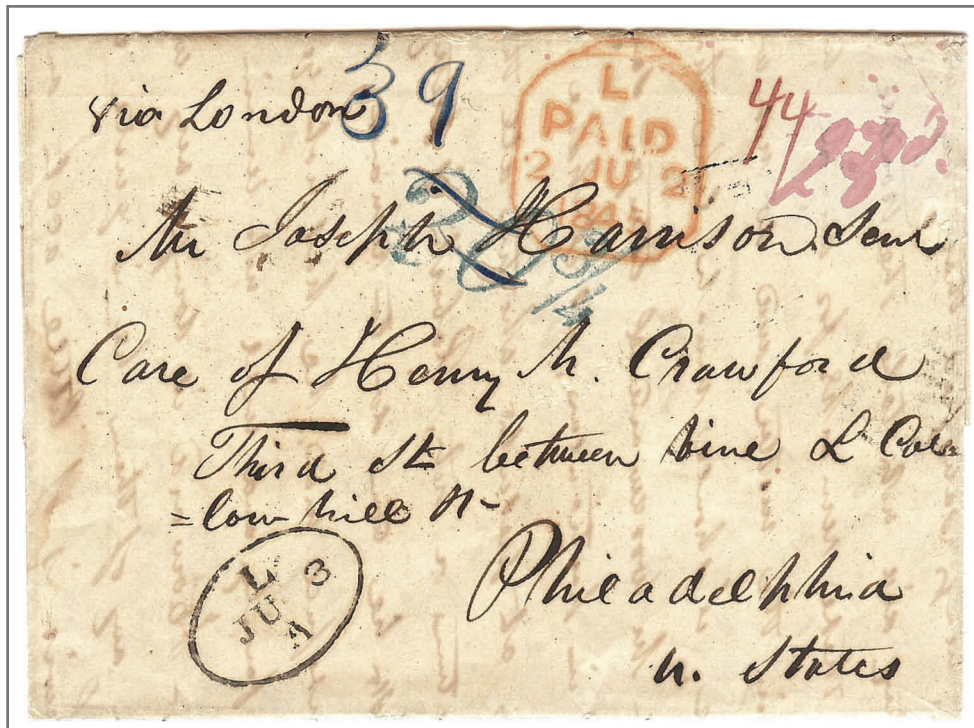 via London 39
L
PAID
2 JU 2
1845
44
Mr Joseph Harrison Senr
Care of Henry M. Crawford
Third St between Vine & Cal=
=low hill St-
L
JU 3
A
Philadelphia
U. States